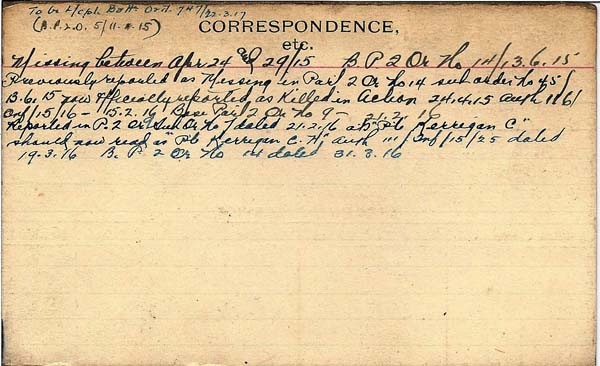 To be L/Cpl. Battn Ord. 747/22.3.17
(B.P.2.O. 5/11.4.15)
CORRESPONDENCE,
etc.
Missing between Apr 24 & 29/15 B P 2 Or No 14/13.6.15
Previously reported as Missing in Part 2 Or No 14 sub order No 45/
13.6.15 now Officially reported as Killed in Action 24.4.15 auth 116/
Inf/15/16 - 15.2.16 Base Part 2 Or No 9 - 21.2.16
Reported in P. 2 Or Sub Or No 7 dated 21.2/6 as "Pte Kerrigan C"
should now read as Pte Kerrigan C. H; auth 111/Inf/15/25 dated
19.3.16 B. P. 2 Or No 14 dated 31.3.16